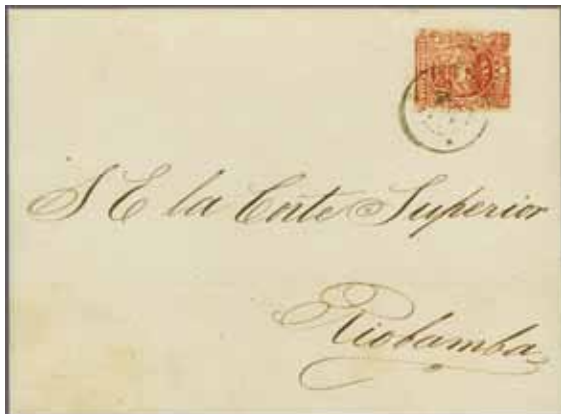 S E la Corte Superior
Riobamba